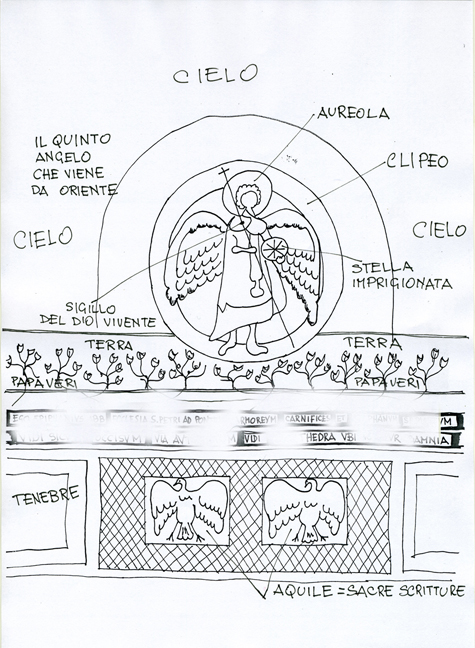 CIELO
AUREOLA
IL QUINTO
ANGELO
CHE VIENE
DA ORIENTE
CLIPEO
CIELO
CIELO
STELLA
IMPRIGIONATA
SIGILLO
DEL DIO VIVENTE
TERRA
TERRA
PAPAVERI
PAPAVERI
ECCLESIA S. PETRI AD CARNIFICES
VIDI VIA VIDI
TENEBRE
AQUILE = SACRE SCRITTURE